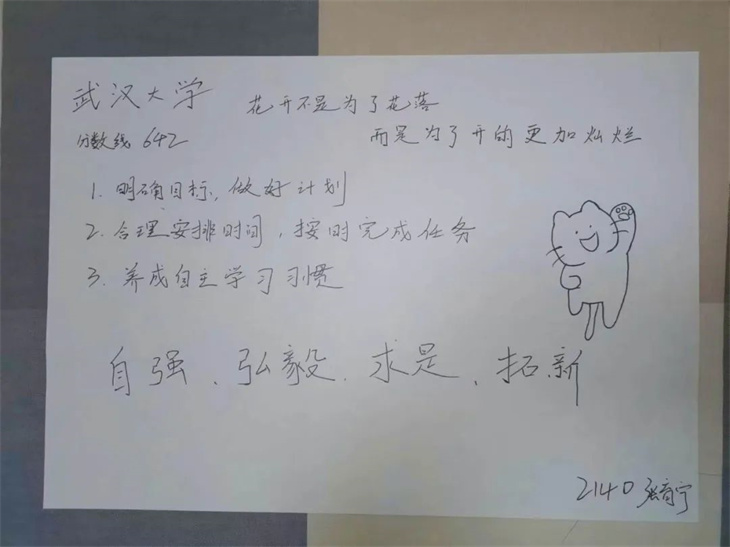 武汉大学
花开不是为了花落
分数线 642
而是为了开的更加灿烂
1. 明确目标，做好计划
2. 合理安排时间，按时完成任务
3. 养成自主学习习惯
自强、弘毅、求是、拓新
2140 张育宁